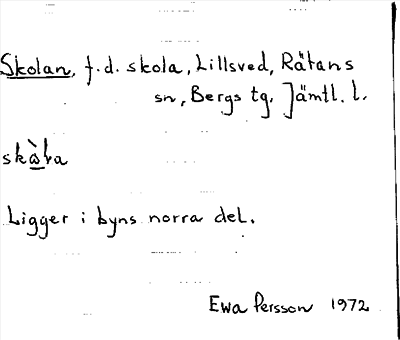 Skolan, f.d. skola, Lillsved, Rätans
sn, Bergs tg. Jämtl. l.
Ligger i byns norra del.
Ewa Persson 1972